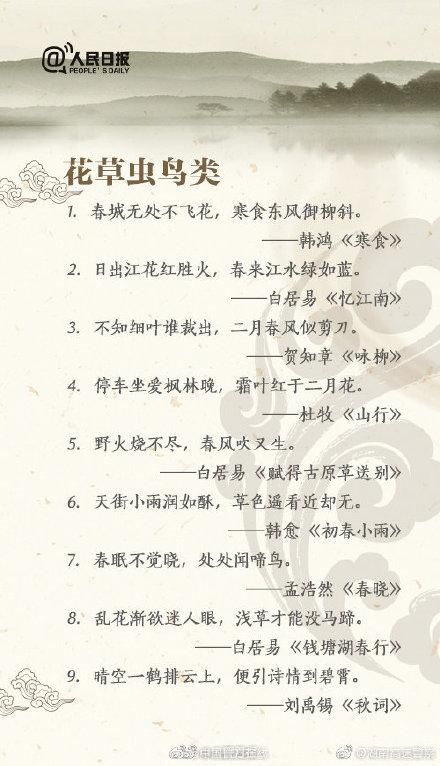 @人民日报
PEOPLE'S DAILY
花草虫鸟类
1. 春城无处不飞花，寒食东风御柳斜。
——韩鸿《寒食》
2. 日出江花红胜火，春来江水绿如蓝。
——白居易《忆江南》
3. 不知细叶谁裁出，二月春风似剪刀。
——贺知章《咏柳》
4. 停车坐爱枫林晚，霜叶红于二月花。
——杜牧《山行》
5. 野火烧不尽，春风吹又生。
——白居易《赋得古原草送别》
6. 天街小雨润如酥，草色遥看近却无。
——韩愈《初春小雨》
7. 春眠不觉晓，处处闻啼鸟。
——孟浩然《春晓》
8. 乱花渐欲迷人眼，浅草才能没马蹄。
——白居易《钱塘湖春行》
9. 晴空一鹤排云上，便引诗情到碧霄。
——刘禹锡《秋词》